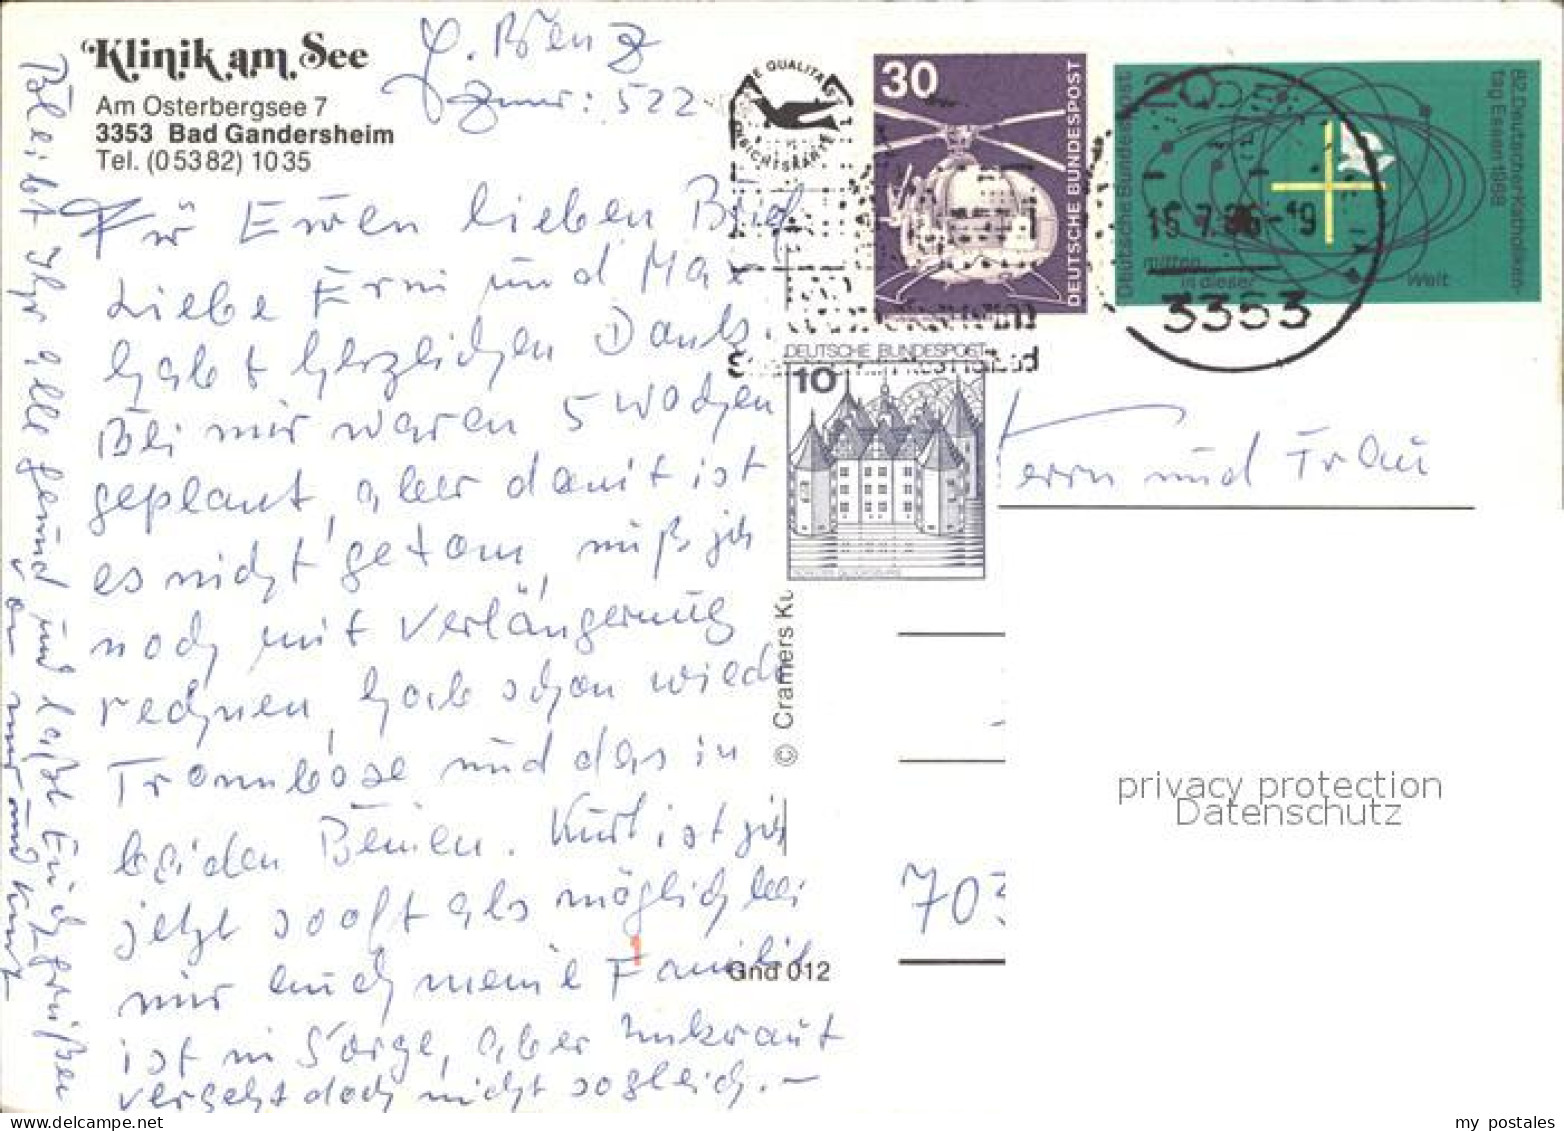 Klinik am See
Am Osterbergsee 7
3353 Bad Gandersheim
Tel. (05382) 1035
Benz
Zimmer: 522
Für Euren lieben Brief
Liebe Erni und Max
habt herzlichen Dank.
Bei mir waren 5 Wochen
geplant, aber damit ist
es nicht getan, muß ich
noch mit Verlängerung
rechnen, hab schon wieder
Trombose und das in
beiden Beinen. Kurt ist ja
jetzt so oft als möglich bei
mir auch meine Familie
ist in Sorge, aber Unkraut
vergeht doch nicht sogleich. –
Bleibt Ihr alle gesund und laßt Euch grüßen
von mir und Kurt
QUALITÄT
30
DEUTSCHE BUNDESPOST
Deutsche Bundespost
82. Deutscher Katholiken-
tag Essen 1968
mitten
in dieser
Welt
15.7.86-19
3353
DEUTSCHE BUNDESPOST
10
SCHLOSS GLÜCKSBURG
Herrn und Frau
703
© Cramers Ku
Gnd 012
privacy protection
Datenschutz
my postales